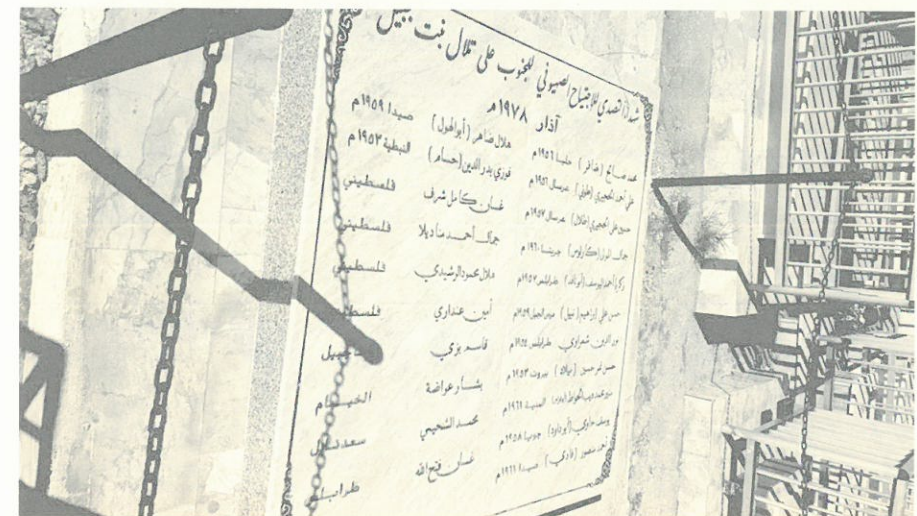 شهداء التصدي للاجتياح الصهيوني للجنوب على تلال بنت جبيل
آذار ١٩٧٨م
محمد صالح (ظافر) حلبا ١٩٥٦م
علي أحمد الحجيري عرسال ١٩٥٦م
حسين علي الحجيري (طلال) عرسال ١٩٥٧م
جمال ١٩٦٠م
زكريا أحمد اليوسف طرابلس ١٩٥٢م
حسن علي إبراهيم (نبيل) ١٩٥٩م
نور الدين شعراوي طرابلس ١٩٥٥م
حسن حسين بيروت ١٩٥٣م
١٩٦١م
يوسف (أبو داود) جويا ١٩٥٨م
أحمد منصور صيدا ١٩٦١م
هلال ضاهر (أبو الهول) صيدا ١٩٥٩م
فوزي بدر الدين (حسام) النبطية ١٩٥٣م
غسان كامل شرف فلسطيني
جمال أحمد ماديلا فلسطيني
هلال محمود الرشيدي فلسطيني
أمين عنداري
قاسم بزي
بشار عواضة الخيام
محمد الشحيمي
غسان فتح الله